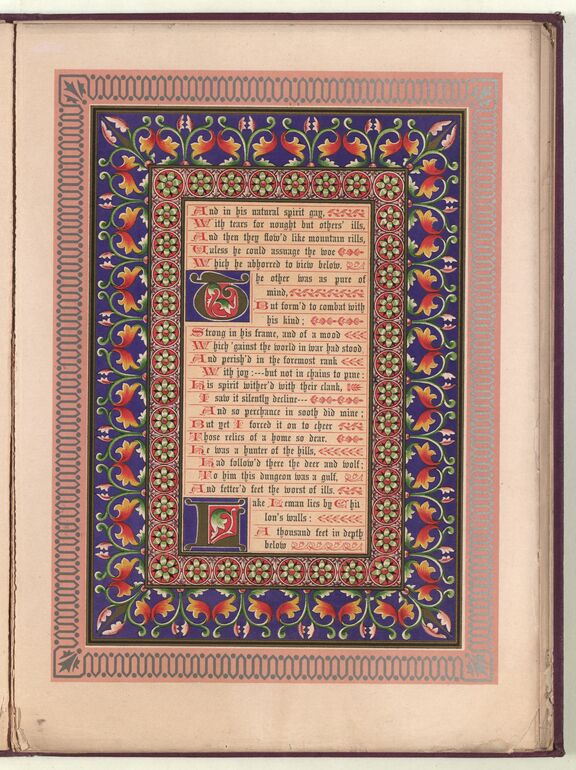 And in his natural spirit gay,
With tears for nought but others' ills,
And then they flow'd like mountain rills,
Unless he could assuage the woe
Which he abhorred to view below.
The other was as pure of
mind,
But form'd to combat with
his kind;
Strong in his frame, and of a mood
Which 'gainst the world in war had stood,
And perish'd in the foremost rank
With joy:---but not in chains to pine:
His spirit wither'd with their clank,
I saw it silently decline---
And so perchance in sooth did mine;
But yet I forced it on to cheer
Those relics of a home so dear.
He was a hunter of the hills,
Had follow'd there the deer and wolf;
To him this dungeon was a gulf,
And fetter'd feet the worst of ills.
Lake Leman lies by Chil
lon's walls:
A thousand feet in depth
below